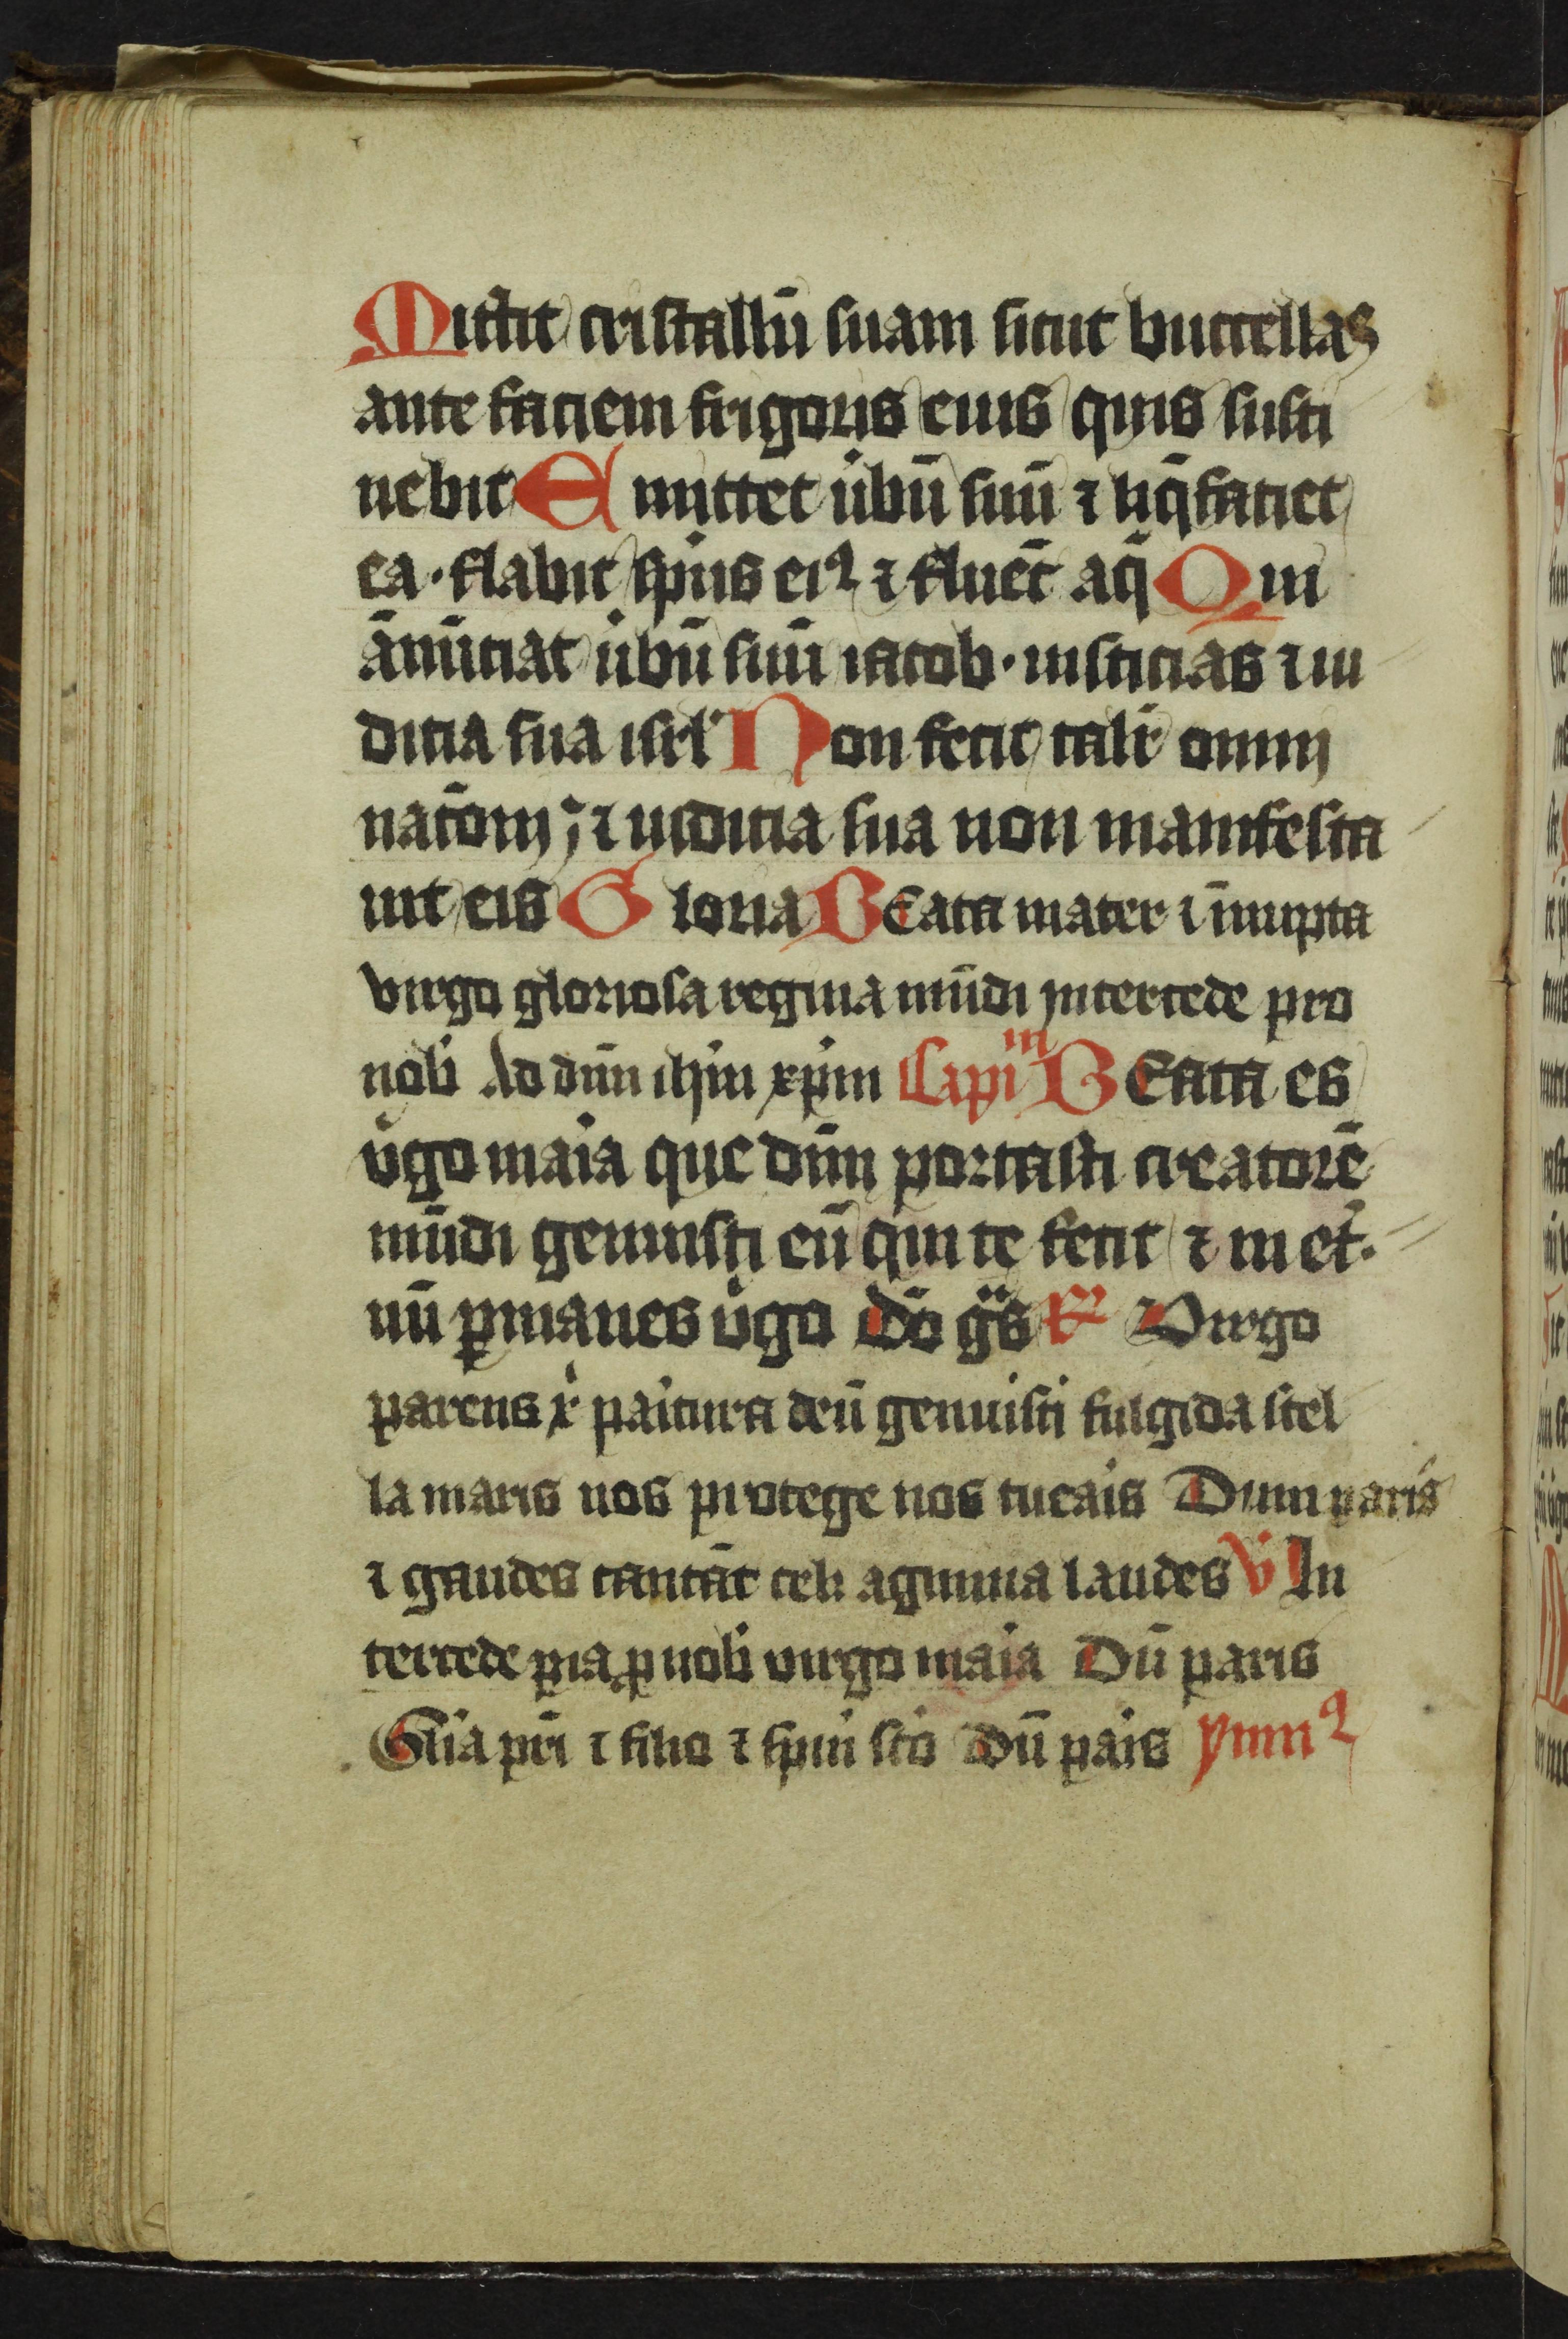 Mittit cristallū suam sicut buccellas
ante faciem frigoris eius quis susti
nebit E mittet ūbū suū ⁊ liq̄faciet
ea · flabit sp̄us eiꝰ ⁊ fluēt aq̄ Qui
ānūciat ūbū suū iacob · iusticias ⁊ iu
dicia sua isrl̄ Non fecit talit̄ omni
natōni ; ⁊ iudicia sua non manifesta
uit eis Gloria BEata mater ⁊ īnupta
virgo gloriosa regina mūdi intercede pro
nob̄ Ad dūm ihm̄ xp̄m Capim̄ BEata es
ūgo maīa que dn̄m portasti creatorē
mūdi genuisti eū qui te fecit ⁊ in et̄
nū ꝑmanes ūgo Dō gr̄s R̄ Virgo
parens xp̄ paritura deū genuisti fulgida stel
la maris nos protege nos tuearis Dum paris
⁊ gaudes cantāt celi agmina laudes V̄ In
tercede pia ꝓ nob̄ virgo maīa Dū paris
Gl̄ia pr̄i ⁊ filio ⁊ sp̄ui sc̄o Dū pāis ymnꝰ